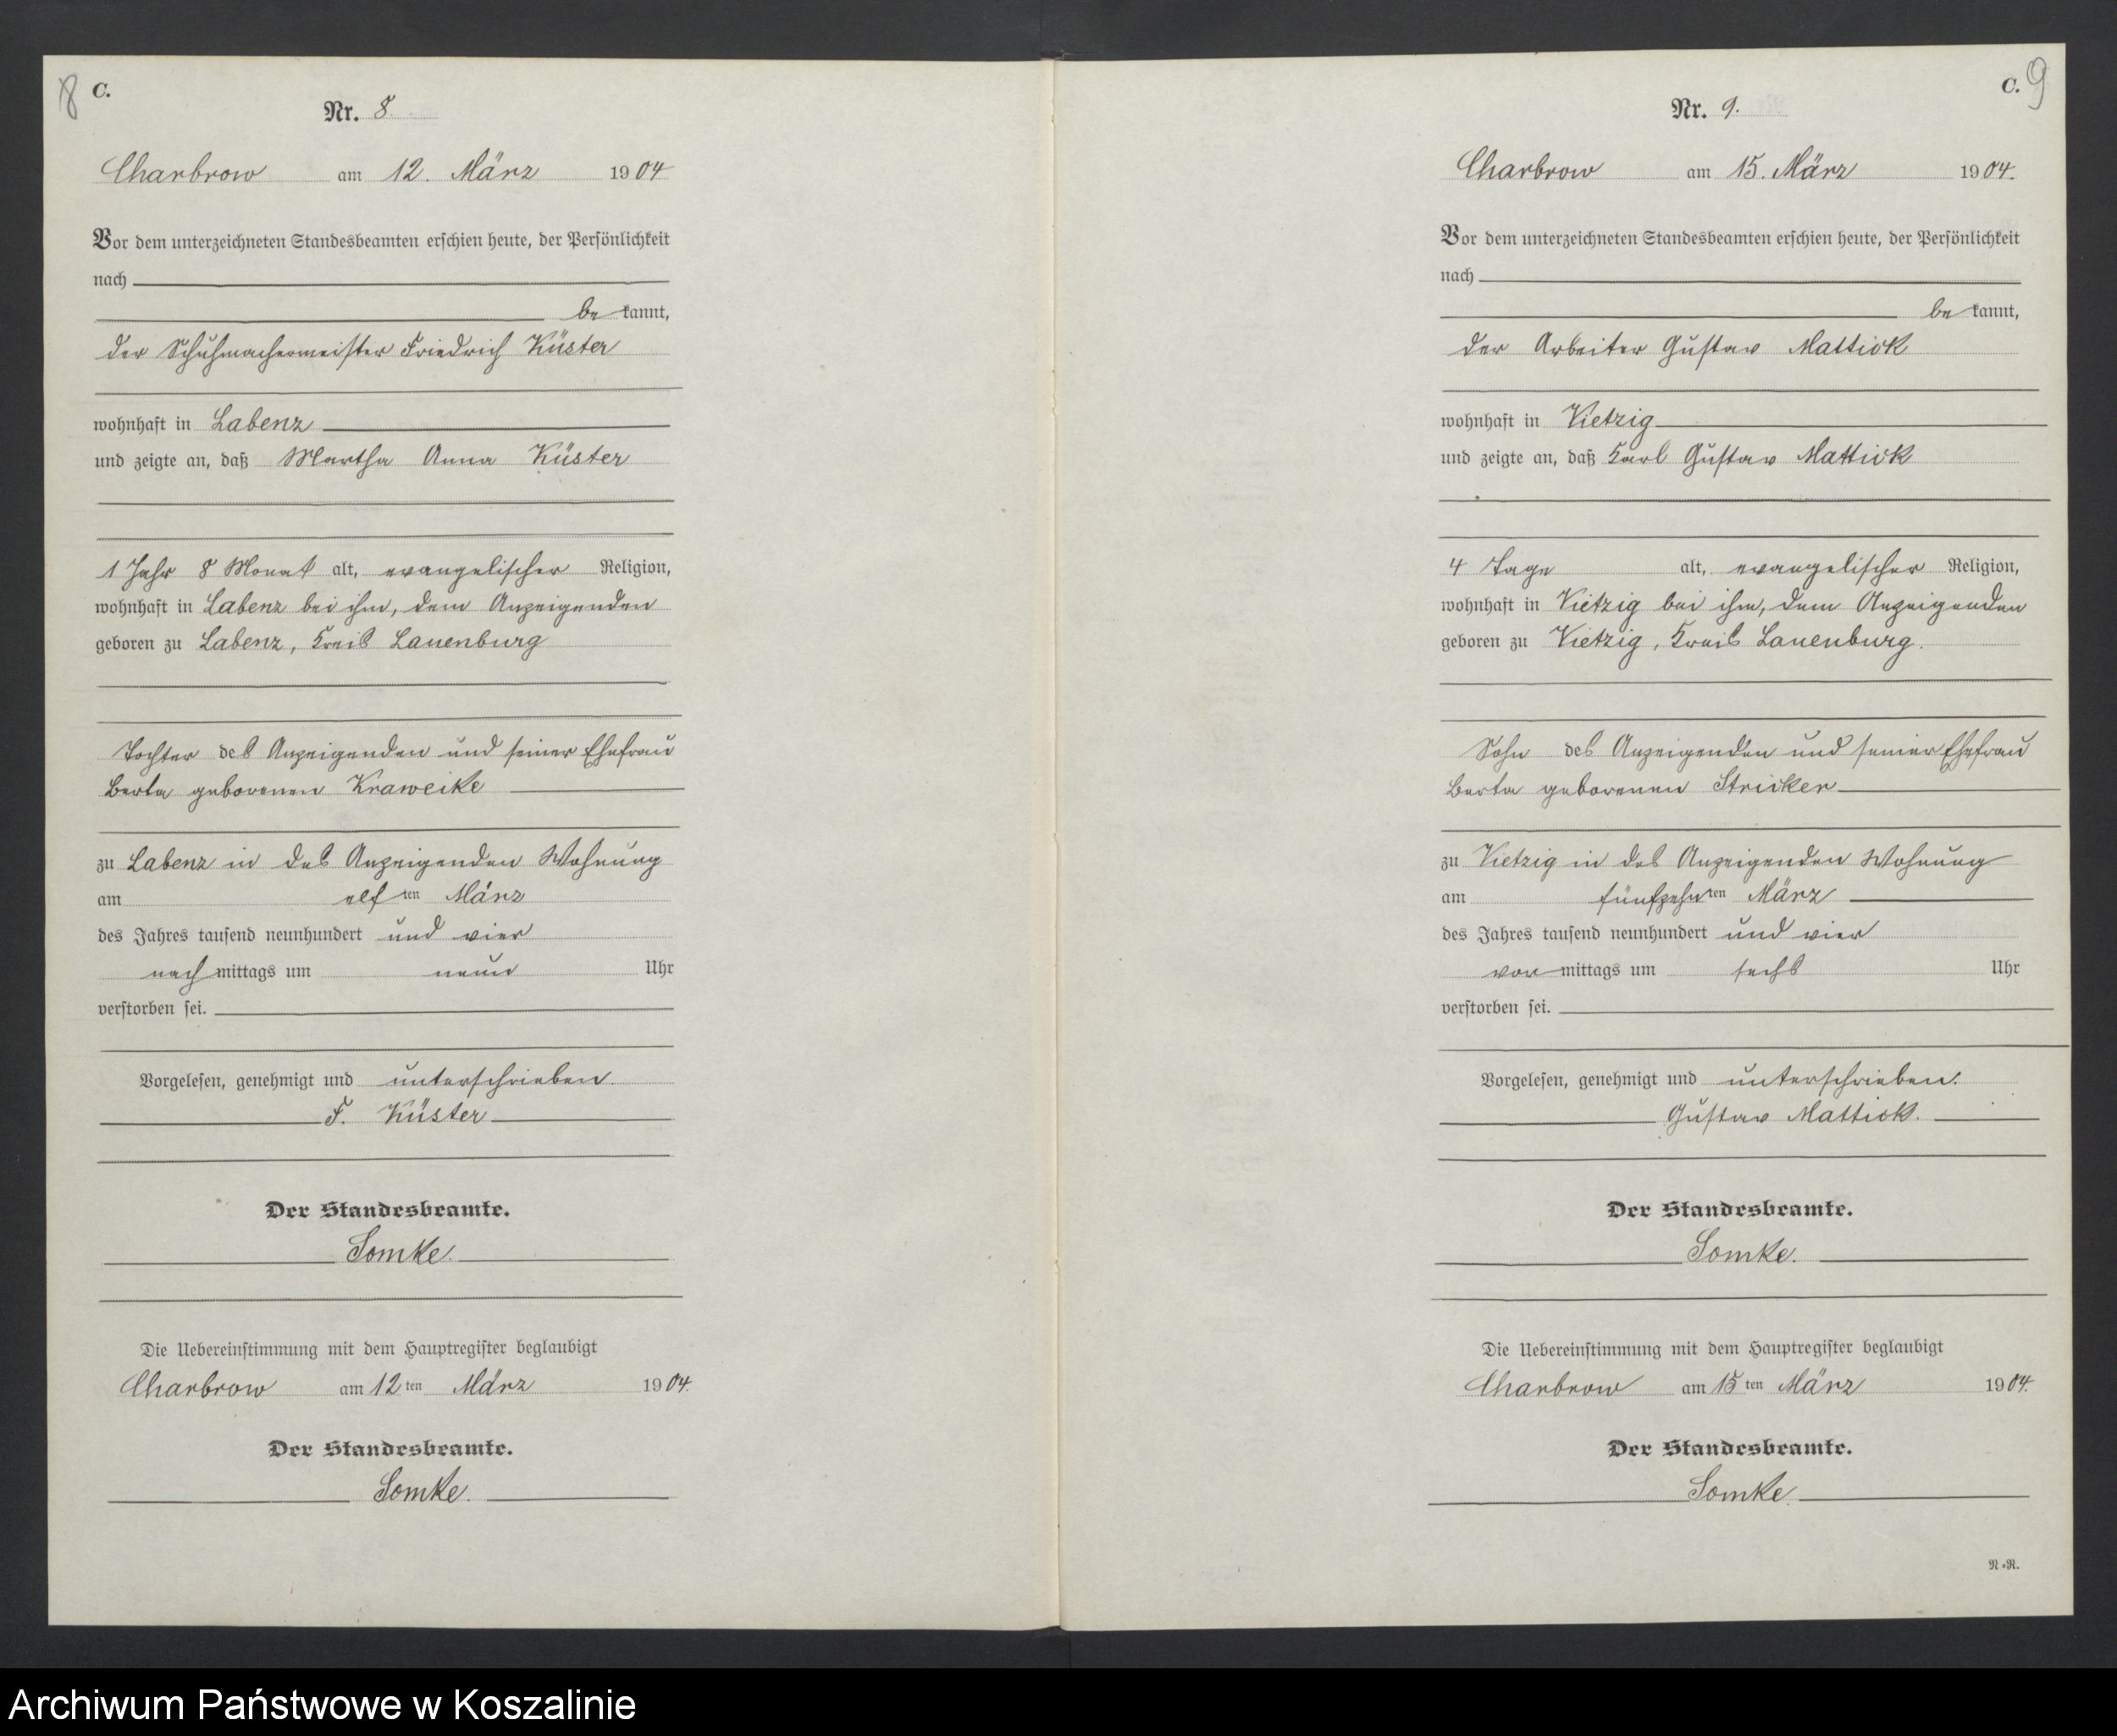 8 C.
Nr. 8.
Charbrow am 12. März 1904
Vor dem unterzeichneten Standesbeamten erschien heute, der Persönlichkeit
nach
be kannt,
der Schuhmachermeister Friedrich Küster
wohnhaft in Labenz
und zeigte an, daß Martha Anna Küster
1 Jahr 8 Monat alt, evangelischer Religion,
wohnhaft in Labenz bei ihm, dem Anzeigenden
geboren zu Labenz, Kreis Lauenburg
Tochter des Anzeigenden und seiner Ehefrau
Berta geborenen Kraweike
zu Labenz in des Anzeigenden Wohnung
am elf ten März
des Jahres tausend neunhundert und vier
nach mittags um neun Uhr
verstorben sei.
Vorgelesen, genehmigt und unterschrieben.
F. Küster
Der Standesbeamte.
Somke.
Die Uebereinstimmung mit dem Hauptregister beglaubigt
Charbrow am 12 ten März 1904.
Der Standesbeamte.
Somke.
C. 9
Nr. 9.
Charbrow am 15. März 1904.
Vor dem unterzeichneten Standesbeamten erschien heute, der Persönlichkeit
nach
be kannt,
der Arbeiter Gustav Mattick
wohnhaft in Vietzig
und zeigte an, daß Karl Gustav Mattick
4 Tage alt, evangelischer Religion,
wohnhaft in Vietzig bei ihm, dem Anzeigenden
geboren zu Vietzig, Kreis Lauenburg.
Sohn des Anzeigenden und seiner Ehefrau
Berta geborenen Stricker
zu Vietzig in des Anzeigenden Wohnung
am fünfzehn ten März
des Jahres tausend neunhundert und vier
vor mittags um sechs Uhr
verstorben sei.
Vorgelesen, genehmigt und unterschrieben.
Gustav Mattick.
Der Standesbeamte.
Somke.
Die Uebereinstimmung mit dem Hauptregister beglaubigt
Charbrow am 15 ten März 1904.
Der Standesbeamte.
Somke
N.=R.
Archiwum Państwowe w Koszalinie